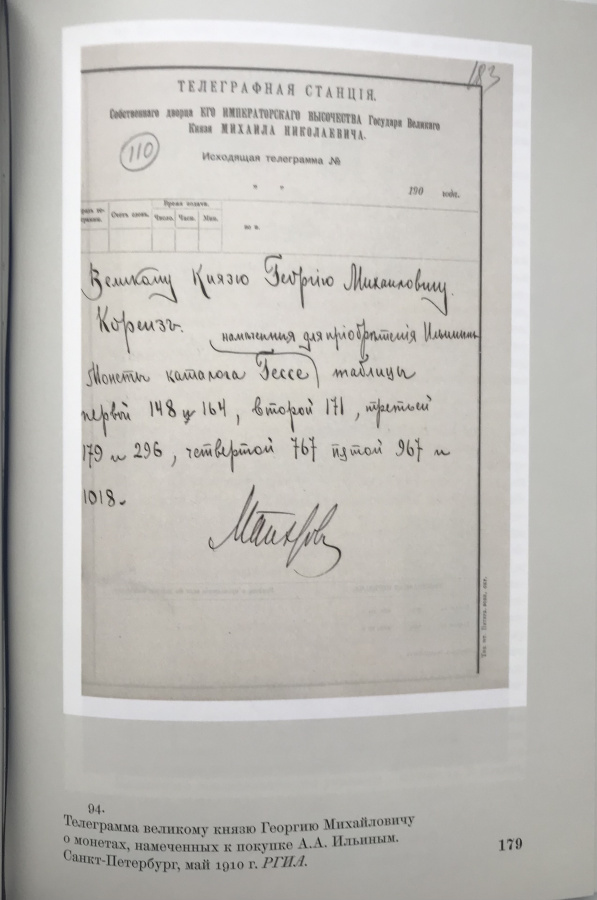 183
ТЕЛЕГРАФНАЯ СТАНЦІЯ.
Собственнаго дворца ЕГО ИМПЕРАТОРСКАГО ВЫСОЧЕСТВА Государя Великаго
Князя МИХАИЛА НИКОЛАЕВИЧА.
110
Исходящая телеграмма №
" " 190 года.
Счетъ словъ. Время подачи.
Число. Часы. Мин.
по п.
Великому Князю Георгію Михаиловичу.
Кореизъ.
намѣченныя для пріобрѣтенія Ильинымъ
Монеты каталога Гессе таблицы
первой 148 и 164, второй 171, третьей
179 и 296, четвертой 767 пятой 967 и
1018.
94.
Телеграмма великому князю Георгию Михайловичу
о монетах, намеченных к покупке А.А. Ильиным.
Санкт-Петербург, май 1910 г. РГИА.
179